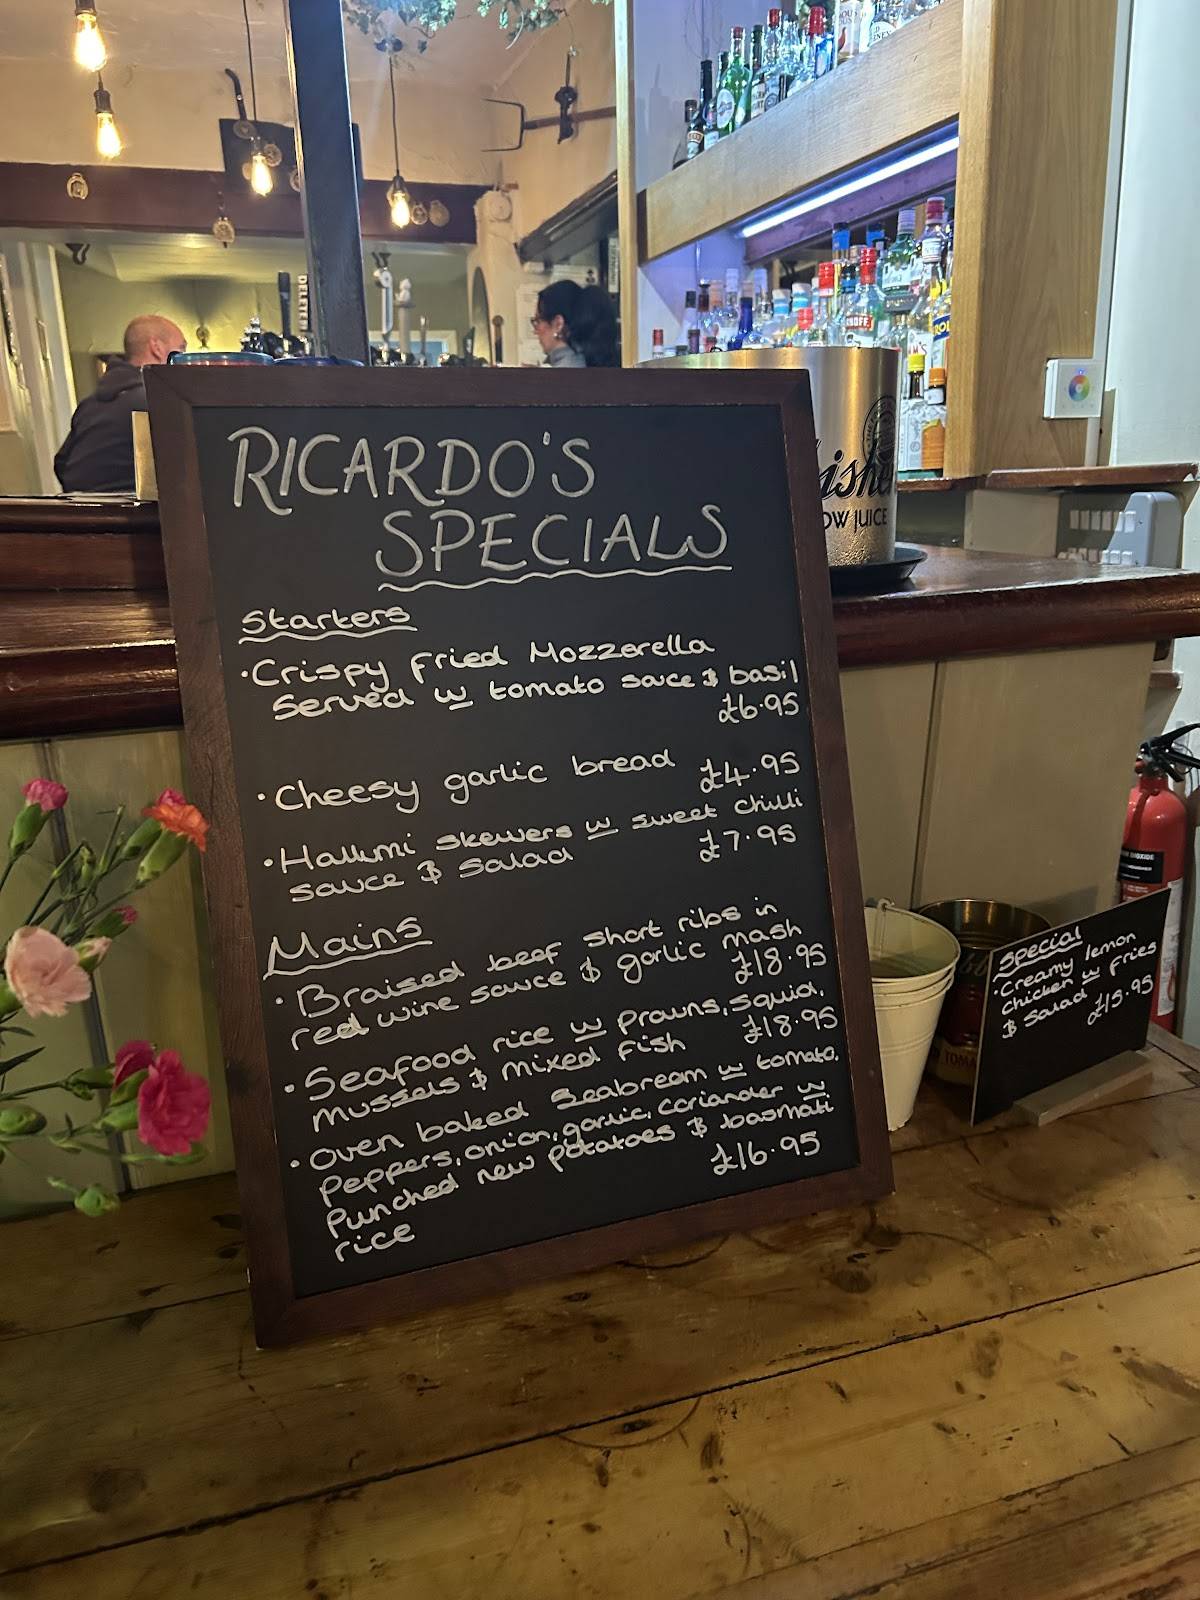 RICARDO'S
SPECIALS
Starters
·Crispy Fried Mozzarella
Served w tomato sauce & basil
£6.95
·Cheesy garlic bread £4.95
·Hallumi skewers w sweet chilli
sauce & Salad £7.95
Mains
·Braised beef short ribs in
red wine sauce & garlic mash
£18.95
·Seafood rice w prawns, squid,
mussels & mixed fish £18.95
·Oven baked Seabream w tomato,
peppers, onion, garlic, coriander w
Punched new potatoes & basmati
rice £16.95
Special
·Creamy lemon
chicken w fries
& Salad £15.95
OW JUICE